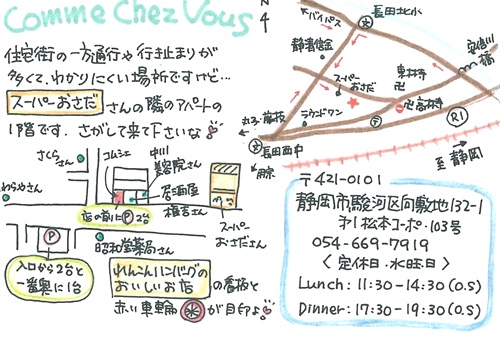 Comme Chez Vous
住宅街の一方通行や行き止まりが
多くて、わかりにくい場所ですけど…
スーパーおさだ さんの隣のアパートの
1階です。さがして来て下さいな
さくらさん
コムシェ
中川
美容院さん
わらやさん
居酒屋
権吉さん
店の前にP2台
スーパー
おさださん
P
昭和堂薬局さん
入口から2台と
一番奥に1台
れんこんハンバーグの
おいしいお店 の看板と
赤い車輪 が目印よ
N
4
バイパス
長田北小
静清信金
スーパー
おさだ
東林寺
卍
安倍川
橋
丸子・藤枝
ラウンドワン
卍高林寺
〒
R1
文
長田西中
用宗
至静岡
〒421-0101
静岡市駿河区向敷地132-1
第1松本コーポ・103号
054-669-7919
〈定休日・水曜日〉
Lunch: 11:30-14:30(o.s)
Dinner: 17:30-19:30(o.s)